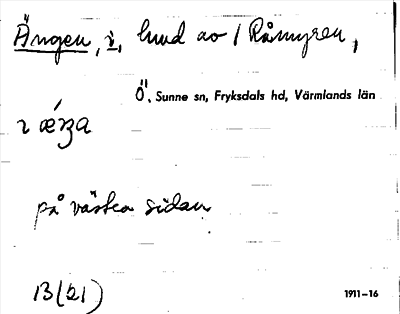 Ängen, i, lund av / Råmyren,
Ö, Sunne sn, Fryksdals hd, Värmlands län
på västra sidan
B(21)
1911-16